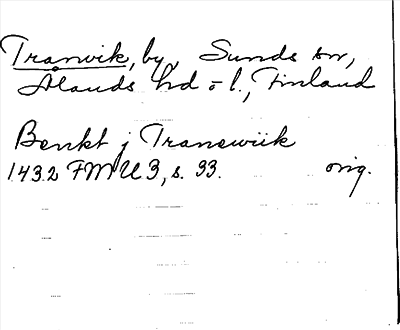 Tranvik, by, Sunds sn,
Ålands hd o l., Finland
Benkt j Tranewiik
1432 FMU 3, s. 33. orig.